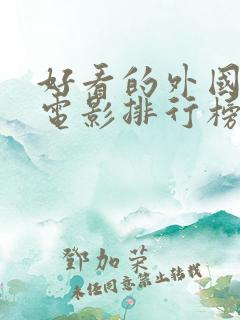 好看的外國
電影排行榜
鄧加榮
未经同意禁止转载